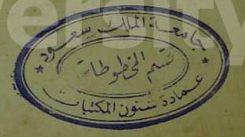 جامعة الملك سعود
قسم المخطوطات
عمادة شئون المكتبات
versity